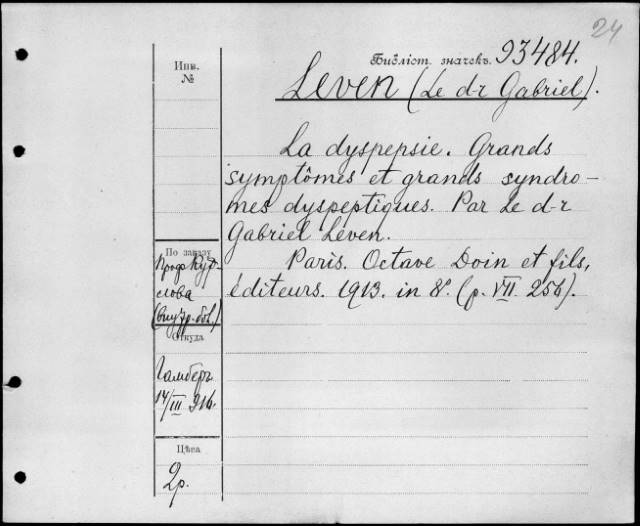 24
Библіот. значекъ. 93484.
Инв.
№
Leven (Le d-r Gabriel).
La dyspepsie. Grands
symptômes et grands syndro-
mes dyspeptiques. Par Le d-r
Gabriel Leven.
Paris. Octave Doin et fils,
éditeurs. 1913. in 8º. (p. VII. 256).
По заказу
Проф. Куд-
слова
Откуда
Гамберъ
14/III 916.
Цѣна
2р.